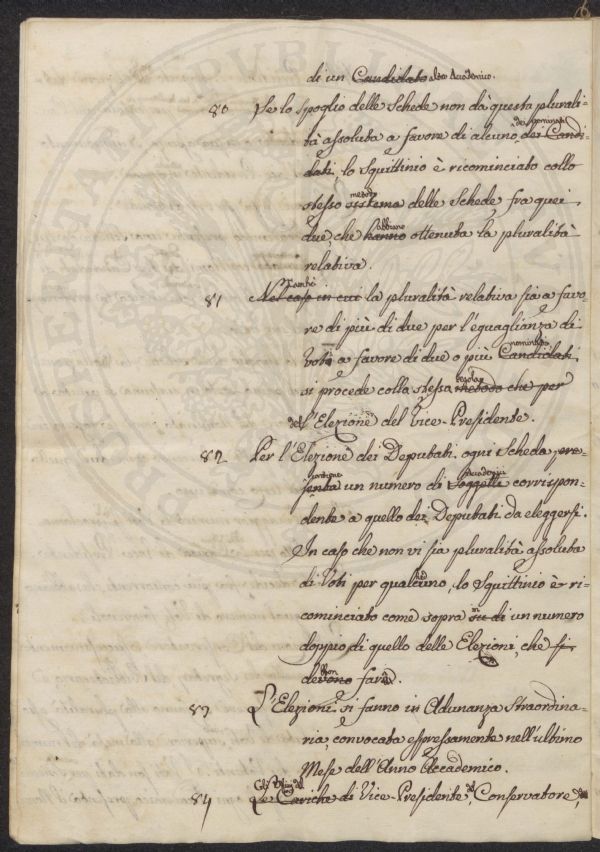 di un Candidato altro Accademico.
80 Se lo spoglio delle Schede non dà questa plurali-
tà assoluta a favore di alcuno dei nominati dei Candi-
dati, lo Squittinio è ricominciato collo
stesso sistema metodo delle Schede fra quei
due, che hanno abbiano ottenuta la pluralità
relativa.
81 Nel caso in cui la pluralità relativa sia a favo-
re di più di due per l'eguaglianza di
Voti a favore di due o più Candidati nominati
si procede colla stessa metodo che per
dell'Elezione del Vice-Presidente.
82 Per l'Elezione dei Deputati ogni Scheda pre-
senta contiene un numero di Soggetti Accademici corrispon-
dente a quello dei Deputati da eleggersi.
In caso che non vi sia pluralità assoluta
di Voti per qualcuno, lo Squittinio è ri-
cominciato come sopra su di un numero
doppio di quello delle Elezioni, che si
devono fare.
83 L'Elezioni si fanno in Adunanza Straordina-
ria, convocata espressamente nell'ultimo
Mese dell'Anno Accademico.
84 Le Cariche di Vice-Presidente, Conservatore,